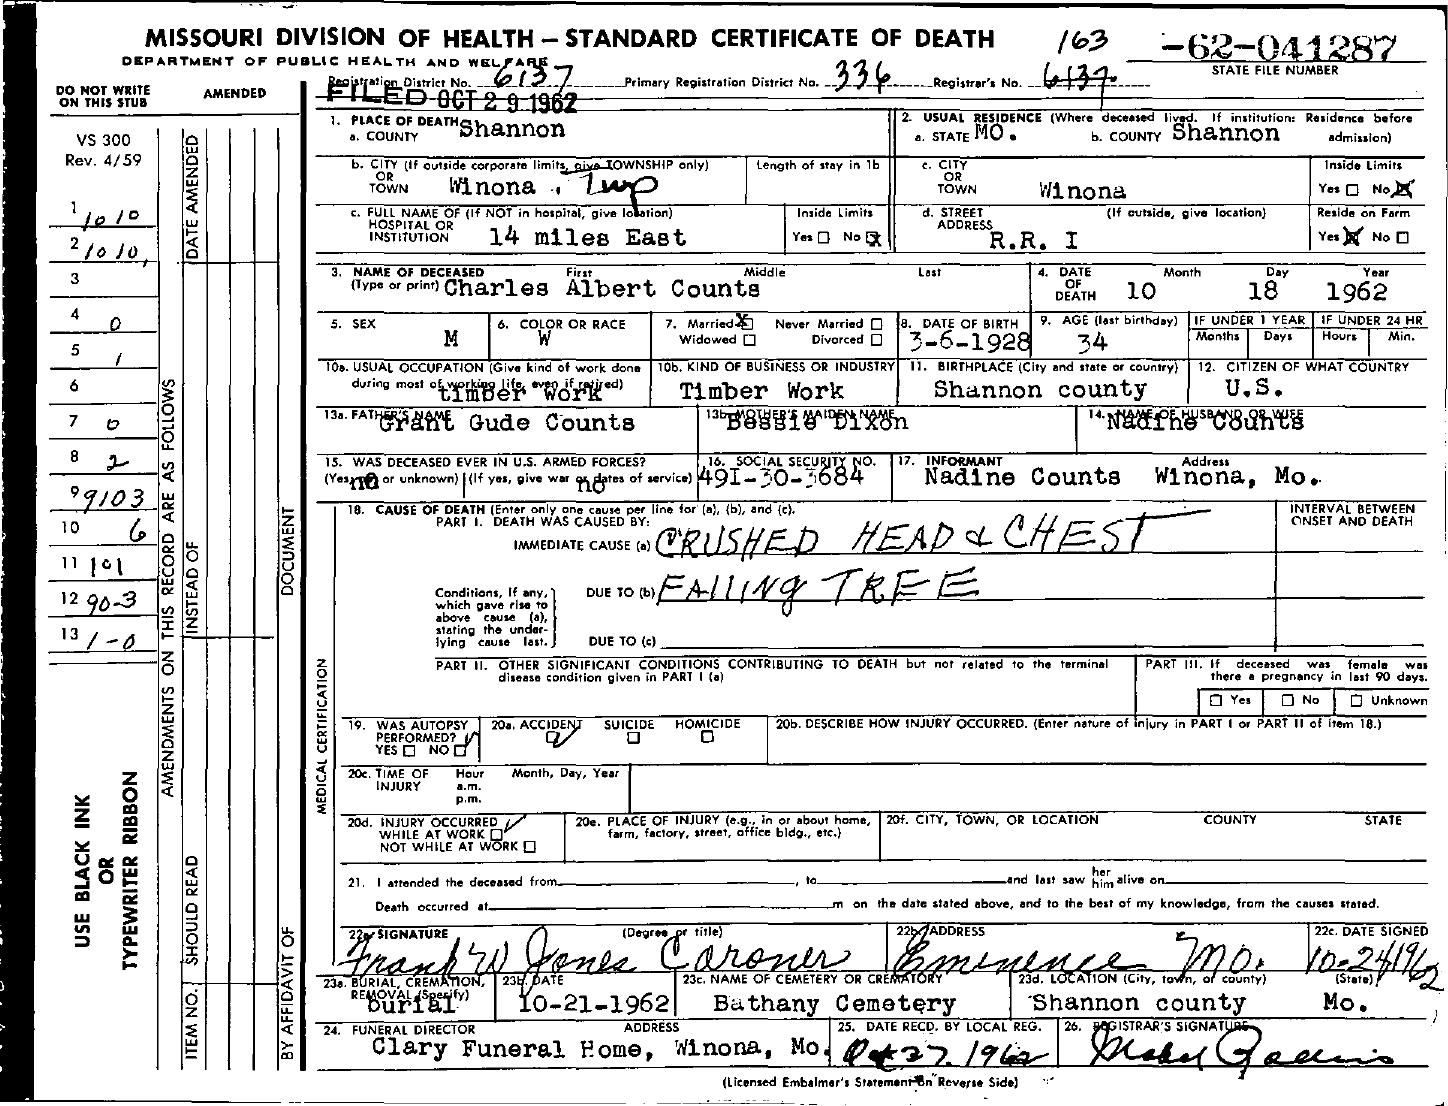 MISSOURI DIVISION OF HEALTH – STANDARD CERTIFICATE OF DEATH
163
-62-041287
DEPARTMENT OF PUBLIC HEALTH AND WELFARE
STATE FILE NUMBER
Registration District No. 6137 Primary Registration District No. 336 Registrar's No. 6137
FILED OCT 29 1962
DO NOT WRITE ON THIS STUB
AMENDED
VS 300
Rev. 4/59
1 1010
2 1010
3
4 0
5 1
6
7 0
8 2
9 9103
10 6
11 101
12 90-3
13 1-0
USE BLACK INK
OR
TYPEWRITER RIBBON
AMENDMENTS ON THIS RECORD ARE AS FOLLOWS
DATE AMENDED
INSTEAD OF
SHOULD READ
ITEM NO.
DOCUMENT
BY AFFIDAVIT OF
1. PLACE OF DEATH
a. COUNTY Shannon
2. USUAL RESIDENCE (Where deceased lived. If institution: Residence before admission)
a. STATE MO. b. COUNTY Shannon
b. CITY (If outside corporate limits, give TOWNSHIP only)
OR
TOWN Winona . Twp
Length of stay in 1b
c. CITY
OR
TOWN Winona
Inside Limits
Yes No
c. FULL NAME OF (If NOT in hospital, give location)
HOSPITAL OR
INSTITUTION 14 miles East
Inside Limits
Yes No
d. STREET ADDRESS (If outside, give location)
R.R. I
Reside on Farm
Yes No
3. NAME OF DECEASED First Middle Last
(Type or print) Charles Albert Counts
4. DATE OF DEATH Month Day Year
10 18 1962
5. SEX
M
6. COLOR OR RACE
W
7. Married Never Married
Widowed Divorced
8. DATE OF BIRTH
3-6-1928
9. AGE (last birthday)
34
IF UNDER 1 YEAR
Months Days
IF UNDER 24 HR
Hours Min.
10a. USUAL OCCUPATION (Give kind of work done
during most of working life, even if retired)
timber work
10b. KIND OF BUSINESS OR INDUSTRY
Timber Work
11. BIRTHPLACE (City and state or country)
Shannon county
12. CITIZEN OF WHAT COUNTRY
U.S.
13a. FATHER'S NAME
Grant Gude Counts
13b. MOTHER'S MAIDEN NAME
Bessie Dixon
14. NAME OF HUSBAND OR WIFE
Nadine Counts
15. WAS DECEASED EVER IN U.S. ARMED FORCES?
(Yes, no, or unknown) (If yes, give war or dates of service)
no no
16. SOCIAL SECURITY NO.
49I-30-3684
17. INFORMANT Address
Nadine Counts Winona, Mo.
MEDICAL CERTIFICATION
18. CAUSE OF DEATH (Enter only one cause per line for (a), (b), and (c).
PART I. DEATH WAS CAUSED BY:
INTERVAL BETWEEN
ONSET AND DEATH
IMMEDIATE CAUSE (a) CRUSHED HEAD & CHEST
Conditions, If any, which gave rise to above cause (a), stating the under-lying cause last.
DUE TO (b) FAlliNg TREE
DUE TO (c)
PART II. OTHER SIGNIFICANT CONDITIONS CONTRIBUTING TO DEATH but not related to the terminal
disease condition given in PART I (a)
PART III. If deceased was female was
there a pregnancy in last 90 days.
Yes No Unknown
19. WAS AUTOPSY
PERFORMED?
YES NO
20a. ACCIDENT SUICIDE HOMICIDE
20b. DESCRIBE HOW INJURY OCCURRED. (Enter nature of injury in PART I or PART II of item 18.)
20c. TIME OF INJURY Hour Month, Day, Year
a.m.
p.m.
20d. INJURY OCCURRED
WHILE AT WORK
NOT WHILE AT WORK
20e. PLACE OF INJURY (e.g., in or about home,
farm, factory, street, office bldg., etc.)
20f. CITY, TOWN, OR LOCATION COUNTY STATE
21. I attended the deceased from , to and last saw her him alive on
Death occurred at m on the date stated above, and to the best of my knowledge, from the causes stated.
22a. SIGNATURE (Degree or title)
Frank W Jones Coroner
22b. ADDRESS
Eminence Mo.
22c. DATE SIGNED
10-24-1962
23a. BURIAL, CREMATION,
REMOVAL (Specify)
burial
23b. DATE
10-21-1962
23c. NAME OF CEMETERY OR CREMATORY
Bathany Cemetery
23d. LOCATION (City, town, or county) (State)
Shannon county Mo.
24. FUNERAL DIRECTOR ADDRESS
Clary Funeral Home, Winona, Mo.
25. DATE RECD. BY LOCAL REG.
Oct 27. 1962
26. REGISTRAR'S SIGNATURE
(Licensed Embalmer's Statement on Reverse Side)